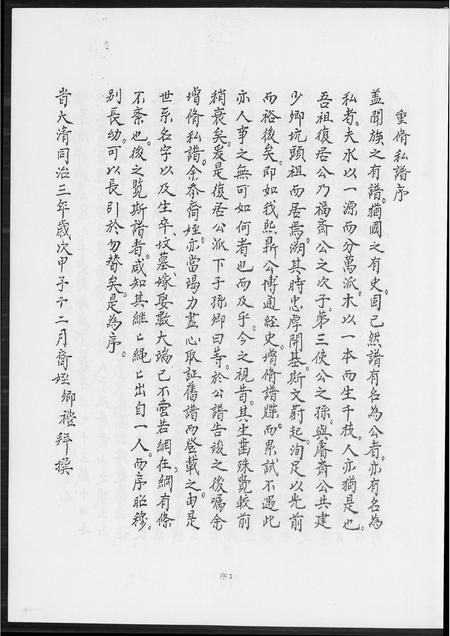 重脩私譜序
蓋聞族之有譜。猶國之有史固已然譜有名為公者。亦有名為
私者。夫水以一源而分萬派。木以一本而生千枝。人亦猶是也
吾祖復君公乃福齋公之次子。第三使公之孫。與睿齋公共建
少卿坑頭祖而居焉溯其時忠厚開基斯文蔚起。洵足以光前
而裕後矣。即如我熙鼎公博通經史。增脩譜牒。而累試不遇此
亦人事之無可如何者也而及乎。今之視昔。其生齒殊覺較前
稍衰矣。爰是復君公派下子孫鄉曰等。於公譜告竣之後囑余
增脩私譜。余忝裔姪。亦當竭力盡心取証舊譜而登載之。由是
世系名字以及生卒。坟墓。嫁娶。數大端已不啻若網在綱有條
不紊也。後之覽斯譜者。咸知其繼〻繩〻出自一人。而序昭穆。
別長幼。可以長引於勿替矣。是為序。
旹大清同治三年歲次甲子十二月裔姪鄉禮拜撰
序1